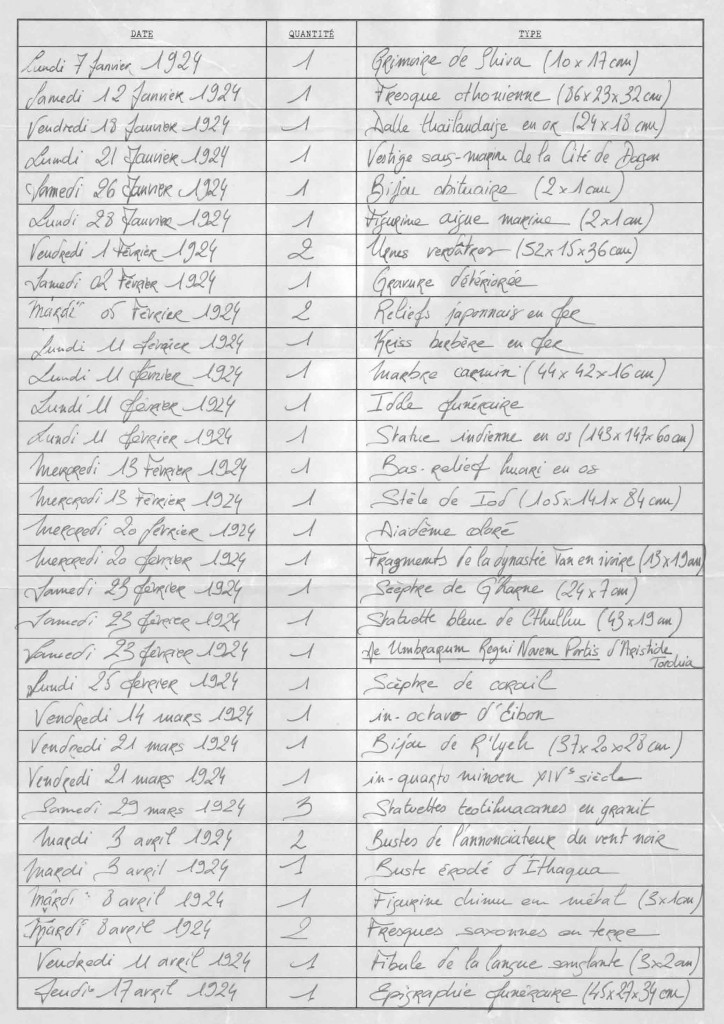 DATE QUANTITÉ TYPE
Lundi 7 Janvier 1924 1 Grimoire de Shiva (10x17cm)
Samedi 12 Janvier 1924 1 Fresque cthonienne (86x23x32cm)
Vendredi 18 Janvier 1924 1 Dalle thaïlandaise en or (24x18cm)
Lundi 21 Janvier 1924 1 Vestige sous-marin de la Cité de Dagon
Samedi 26 Janvier 1924 1 Bijou obituaire (2x1cm)
Lundi 28 Janvier 1924 1 Figurine aigue marine (2x1cm)
Vendredi 1 Février 1924 2 Urnes verdâtres (52x15x36cm)
Samedi 02 Février 1924 1 Gravure détériorée
Mardi 05 Février 1924 2 Reliefs japonnais en fer
Lundi 11 février 1924 1 Kriss berbère en fer
Lundi 11 février 1924 1 Marbre carmin (44x42x16cm)
Lundi 11 février 1924 1 Idole funéraire
Lundi 11 février 1924 1 Statue indienne en os (143x147x60cm)
Mercredi 13 Février 1924 1 Bas-relief huari en os
Mercredi 13 Février 1924 1 Stèle de Iod (105x141x84cm)
Mercredi 20 février 1924 1 Diadème coloré
Mercredi 20 février 1924 1 Fragments de la dynastie Yan en ivoire (13x19cm)
Samedi 23 février 1924 1 Scèptre de G'harne (24x7cm)
Samedi 23 février 1924 1 Statuette bleue de Cthulhu (43x19cm)
Samedi 23 février 1924 1 De Umbrarum Regni Novem Portis d'Aristide
Torchia
Lundi 25 février 1924 1 Scèptre de corail
Vendredi 14 mars 1924 1 in-octavo d'Eibon
Vendredi 21 mars 1924 1 Bijou de R'lyeh (37x20x28cm)
Vendredi 21 mars 1924 1 in-quarto minoen XIVe siècle
Samedi 29 mars 1924 3 Statuettes teotihuacanes en granit
Mardi 3 avril 1924 2 Bustes de l'annonciateur du vent noir
Mardi 3 avril 1924 1 Buste érodé d'Ithaqua
Mardi 8 avril 1924 1 Figurine chimu en métal (3x1cm)
Mardi 8 avril 1924 2 Fresques saxonnes en terre
Vendredi 11 avril 1924 1 Fibule de la langue sanglante (3x2cm)
Jeudi 17 avril 1924 1 Epigraphie funéraire (45x27x34cm)